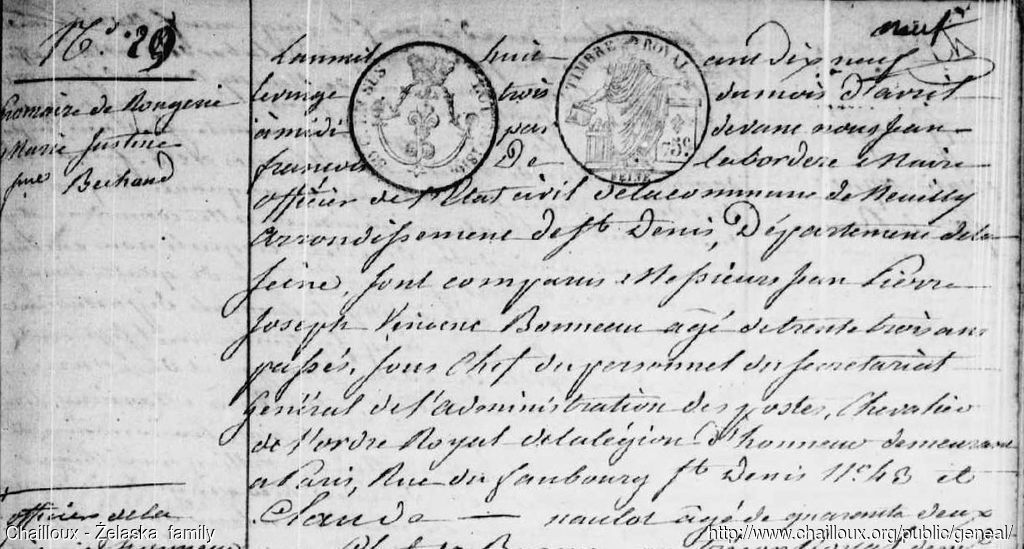 N° 29
neuf
L'an mil huit cent dix neuf
le vingt trois du mois d'avril
à midi par devant nous Jean
françois De Labordere Maire
officier de l'Etat civil de la commune de Neuilly
arrondissement de St Denis, Département de la
Seine, sont comparus Messieurs Jean Pierre
Joseph Vincent Bonneau agé de trente trois ans
passés, sous Chef du personnel du secretariat
Général de l'administration des postes, Chevalier
de l'ordre Royal de la légion d'honneur demeurant
a Paris, Rue du faubourg St Denis N° 43 et
Claude — naulot agé de quarante deux
de Rongerie
Marie Justine
Bechand
officier de la
TIMBRE ROYAL
75c
SEINE
Chailloux - Żelaska family
http://www.chailloux.org/public/geneal/